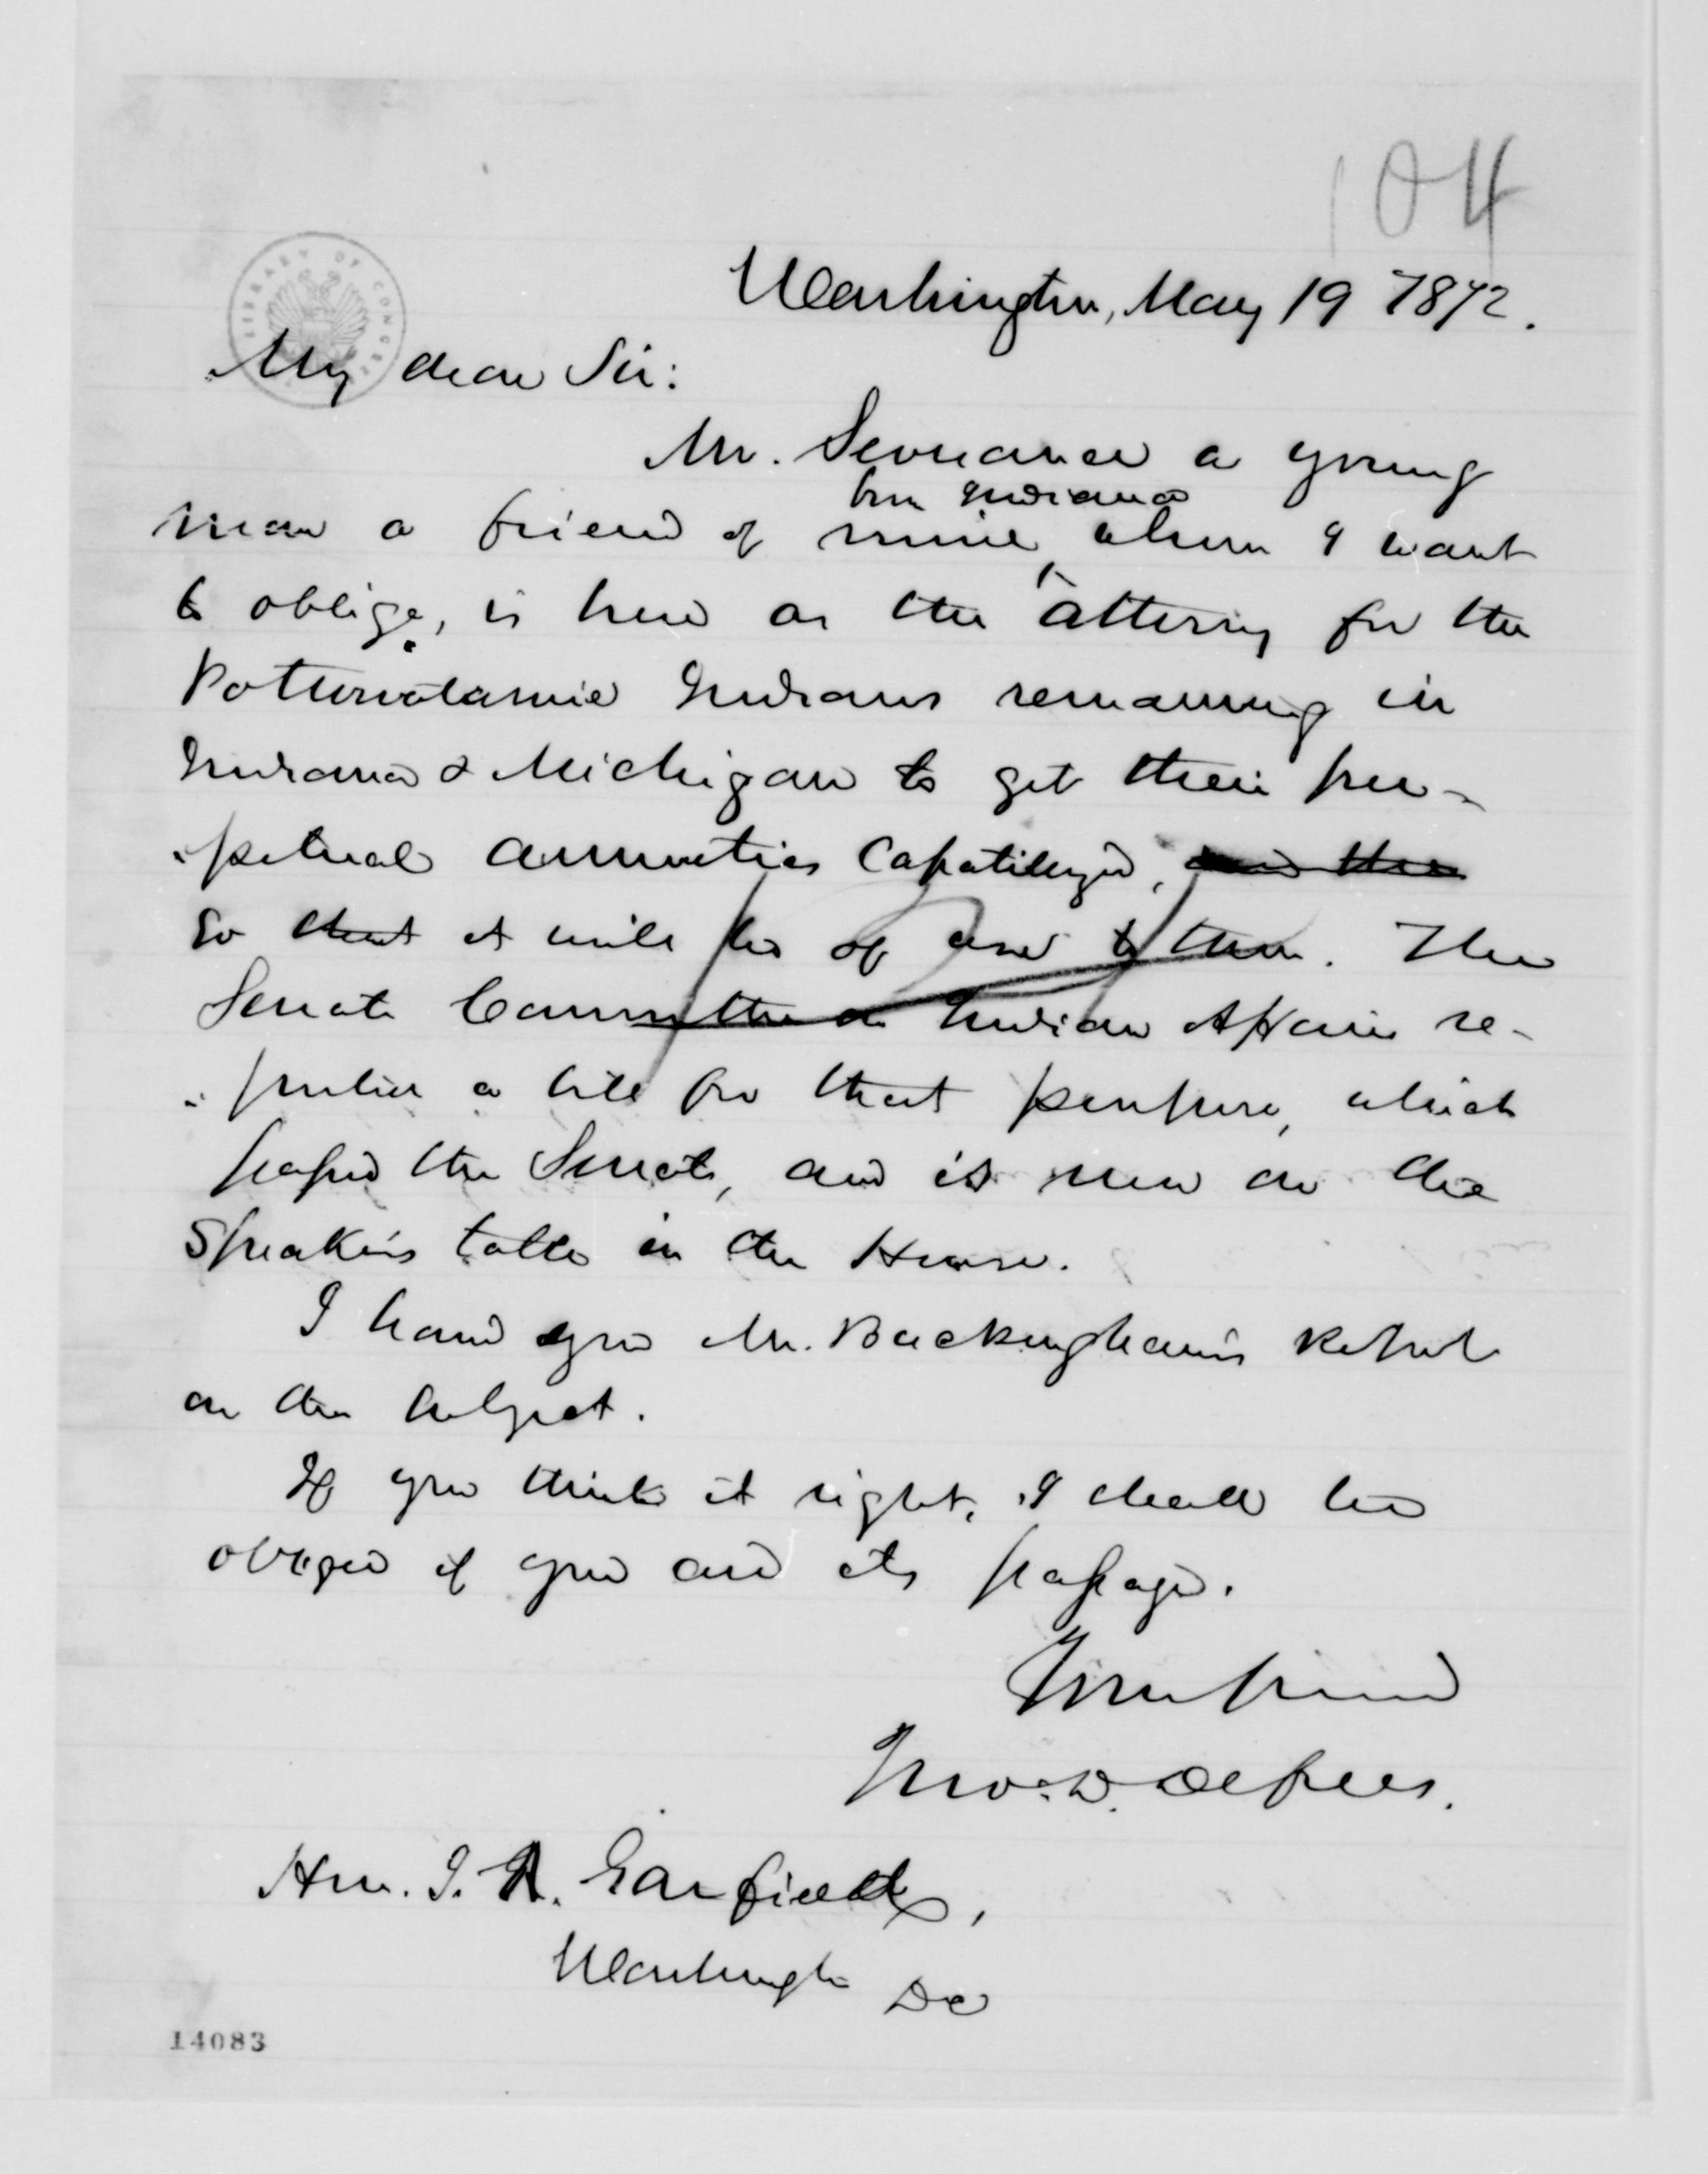 104
Washington, May 19 1872.
LIBRARY OF CONGRESS
My dear Sir:
Mr. Severance a young
from Indiana
man a friend of mine, ^ whom I want
to oblige, is here as the attorney for the
Pottowatamie Indians remaining in
Indiana & Michigan to get their per-
-petual annuities Capatilized, and the
so that it will be of use to them. The
Senate Committee on Indian Affairs re-
-ported a bill for that purpose, which
passed the Senate, and is now on the
Speaker's table in the House.
I hand you Mr. Buckingham's Report
on the subject.
If you think it right, I shall be
obliged if you aid its passage.
Your friend
Jno. D. Defrees.
Hon. J. A. Garfield,
Washington DC
14083